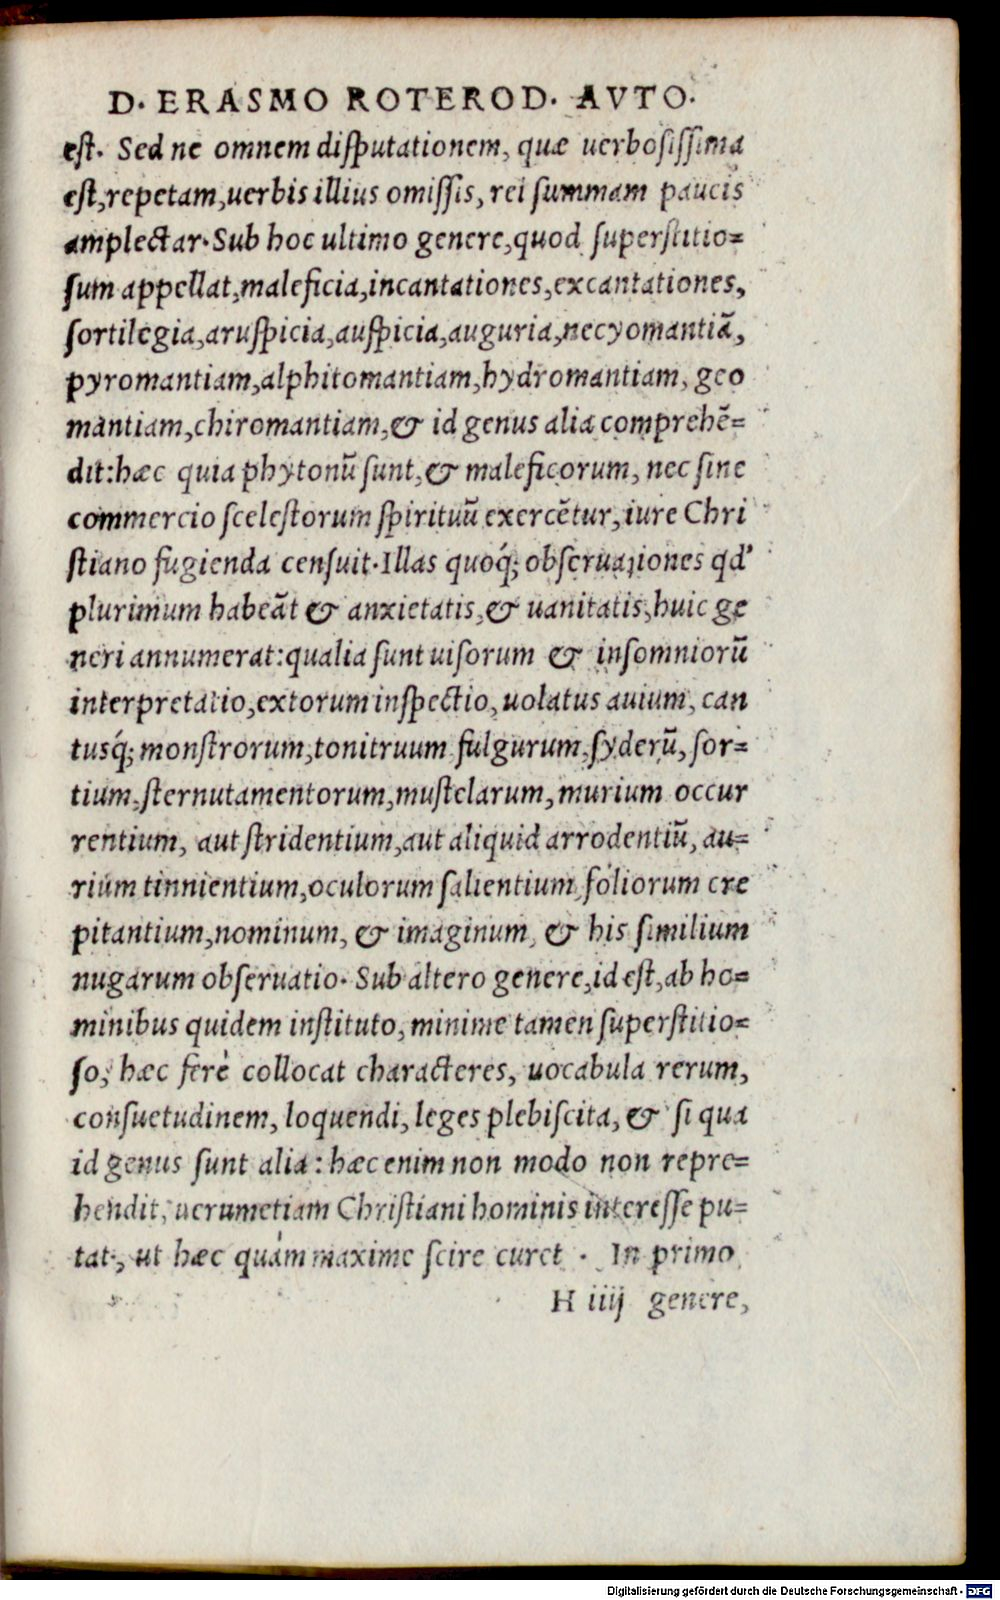 D. ERASMO ROTEROD. AVTO.
est. Sed ne omnem disputationem, quæ uerbosissima
est,repetam,uerbis illius omissis, rei summam paucis
amplectar.Sub hoc ultimo genere,quod superstitio=
sum appellat,maleficia,incantationes,excantationes,
sortilegia,aruspicia,auspicia,auguria,necyomantiã,
pyromantiam,alphitomantiam,hydromantiam, geo
mantiam,chiromantiam,& id genus alia comprehẽ=
dit:hæc quia phytonũ sunt,& maleficorum, nec sine
commercio scelestorum spirituũ exercẽtur,iure Chri
stiano fugienda censuit.Illas quoq́; obseruationes qd'
plurimum habeãt & anxietatis,& uanitatis,huic ge
neri annumerat:qualia sunt uisorum & insomniorũ
interpretatio,extorum inspectio, uolatus auium, can
tusq́; monstrorum,tonitruum fulgurum,syderũ, sor=
tium,sternutamentorum,mustelarum,murium occur
rentium, aut stridentium,aut aliquid arrodentiũ, au=
rium tinnientium,oculorum salientium,foliorum cre
pitantium,nominum, & imaginum, & his similium
nugarum obseruatio. Sub altero genere,id est,ab ho=
minibus quidem instituto, minime tamen superstitio=
so, hæc ferè collocat characteres, uocabula rerum,
consuetudinem, loquendi, leges plebiscita, & si qua
id genus sunt alia : hæc enim non modo non repre=
hendit, uerumetiam Christiani hominis interesse pu=
tat, ut hæc quàm maxime scire curet . In primo
H iiij genere,
Digitalisierung gefördert durch die Deutsche Forschungsgemeinschaft - DFG